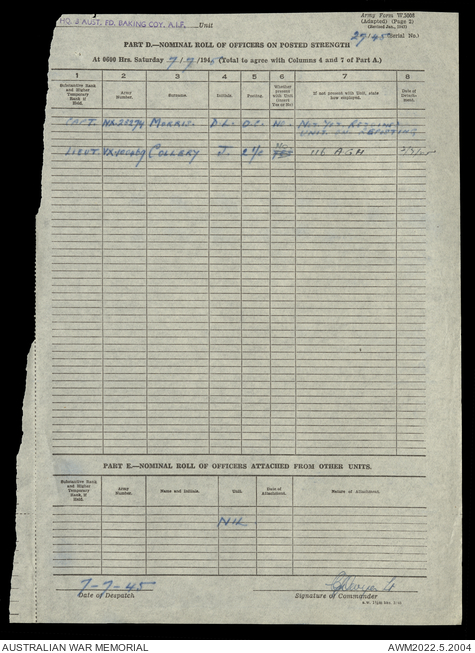 HQ. 3 AUST. FD. BAKING COY. A.I.F. Unit
Army Form W.3008
(Adapted) (Page 2)
(Revised Jan., 1943)
27/45 (Serial No.)
PART D.—NOMINAL ROLL OF OFFICERS ON POSTED STRENGTH
At 0600 Hrs. Saturday 7/7/194 (Total to agree with Columns 4 and 7 of Part A.)
1 2 3 4 5 6 7 8
Substantive Rank and Higher Temporary Rank if Held. Army Number. Surname. Initials. Posting. Whether present with Unit (insert Yes or No) If not present with Unit, state how employed. Date of Detachment.
CAPT. MORRIS. D.L. O.C. NO. NOT YET
UNIT ON
LIEUT. COLLERY J. 2 i/c 116 AGH
PART E.—NOMINAL ROLL OF OFFICERS ATTACHED FROM OTHER UNITS.
Substantive Rank and Higher Temporary Rank, if Held. Army Number. Name and Initials. Unit. Date of Attachment. Nature of Attachment.
NIL
7-7-45
Date of Despatch
Lt
Signature of Commander
AUSTRALIAN WAR MEMORIAL
AWM2022.5.2004